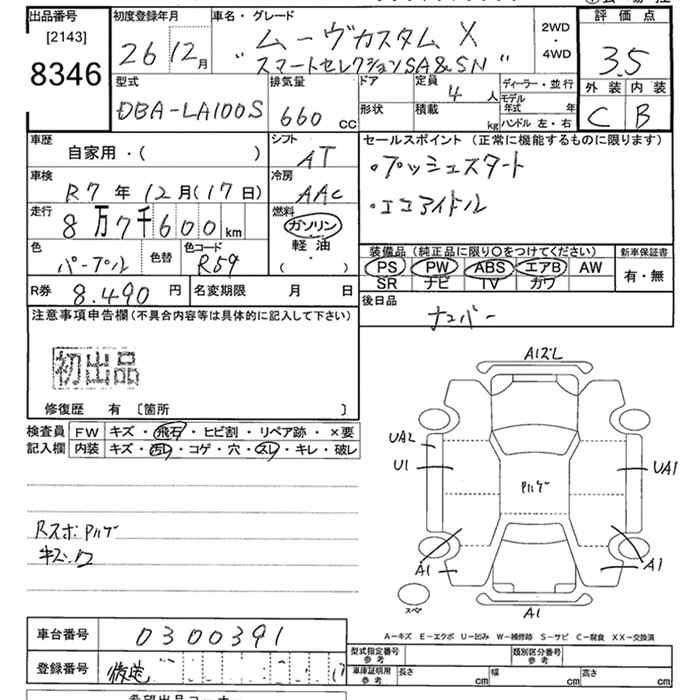 出品番号 初度登録年月 車名・グレード 評価点
[2143]
8346
26 12月
ムーヴカスタム X
"スマートセレクションSA&SN"
2WD
・
4WD
3.5
外装 内装
C B
型式 排気量 ドア 定員 ディーラー・並行
DBA-LA100S 660 cc
4人
モデル年式 年
形状 積載 kg ハンドル 左・右
車歴 シフト セールスポイント (正常に機能するものに限ります)
自家用・( ) AT
・プッシュスタート
車検 冷房
R7年12月(17日) AAC
・エコアイドル
走行 燃料
8万7千600km
ガソリン
軽油
( ・ )
色 色替 色コード
パープル R59
装備品 (純正品に限り○をつけてください) 新車保証書
PS PW ABS エアB AW 有・無
SR ナビ TV カワ
R券 8.490円 名変期限 月 日
後日品
ナンバー
注意事項申告欄(不具合内容等は具体的に記入して下さい)
初出品
修復歴 有 [箇所 ]
検査員 FW キズ・飛石・ヒビ割・リペア跡・×要
記入欄 内装 キズ・汚レ・コゲ・穴・スレ・キレ・破レ
A1ズレ
UA2
U1
UA1
Pハゲ
A1
A1
A1
スペア
Rスポ Pハゲ
車台番号 0300391
登録番号
A-キズ E-エクボ U-凹み W-補修跡 S-サビ C-腐食 XX-交換済
型式指定番号 参考 類別区分番号 参考
車庫証明用 参考 長さ cm 幅 cm 高さ cm